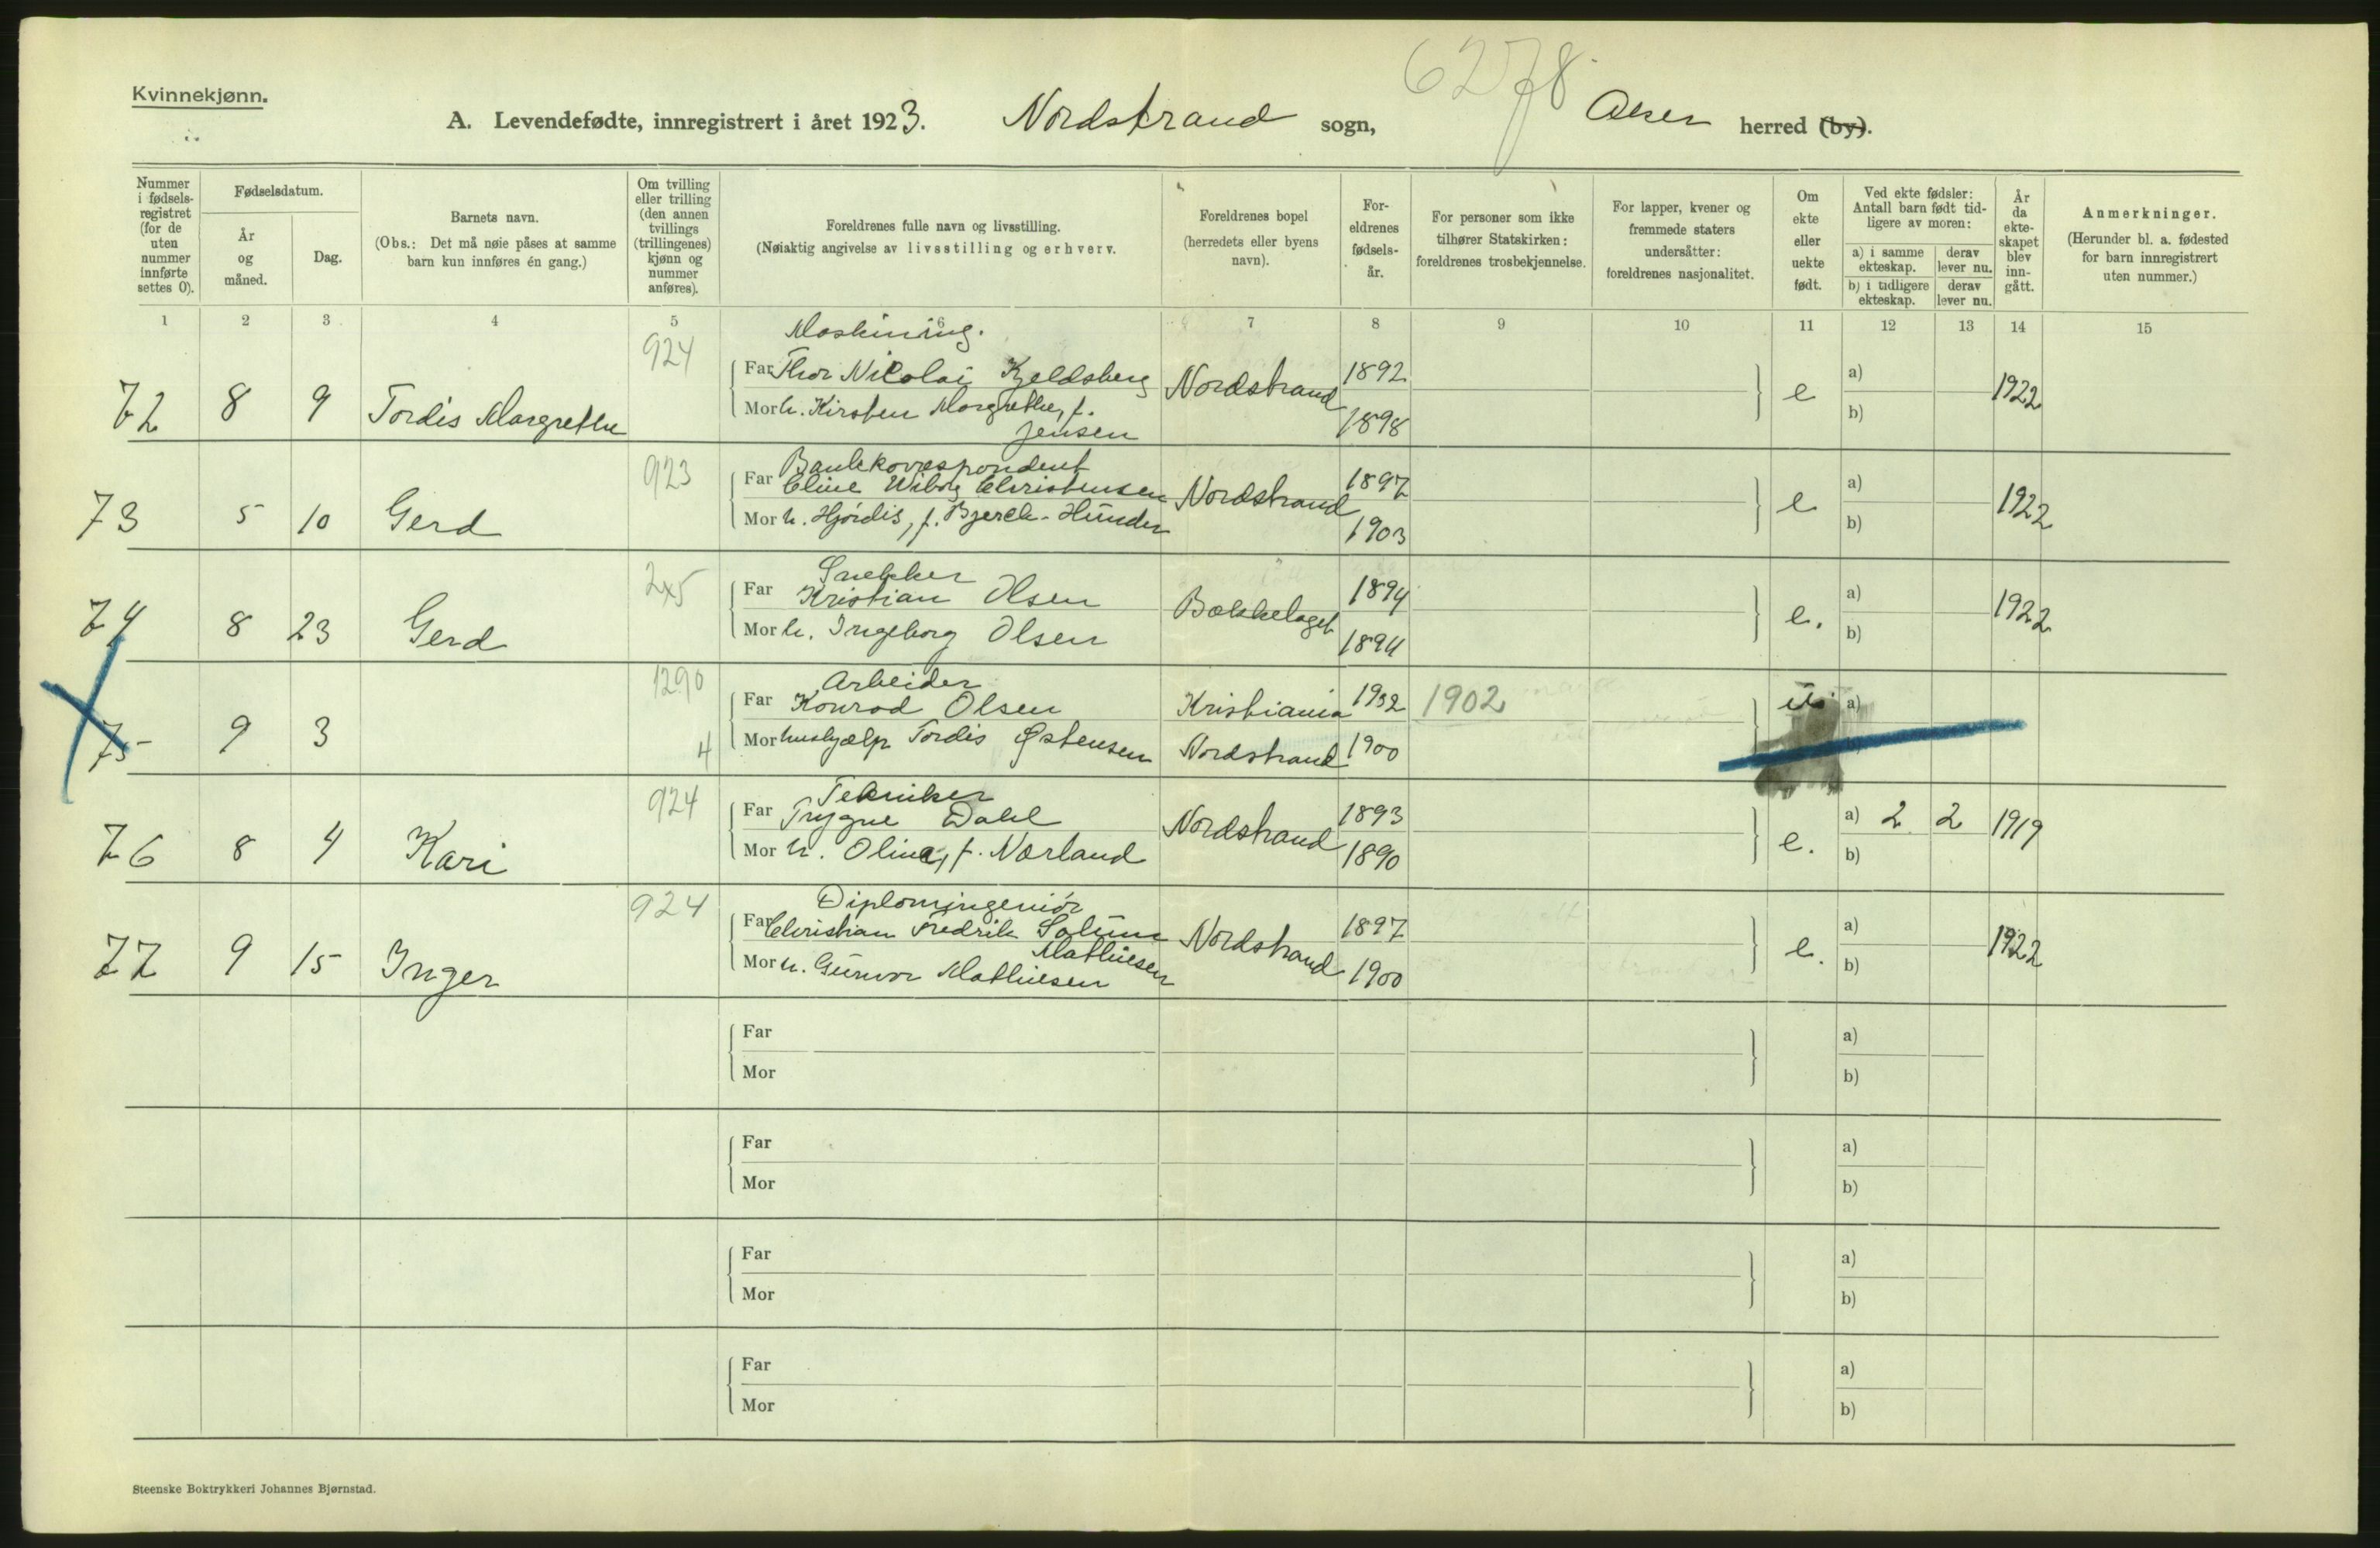 6278
Kvinnekjønn.
A. Levendefødte, innregistrert i året 1923. Nordstrand sogn, Aker herred (by).
Nummer i fødselsregistret (for de uten nummer innførte settes 0).
Fødselsdatum.
År og måned.
Dag.
Barnets navn.
(Obs.: Det må nøie påses at samme barn kun innføres én gang.)
Om tvilling eller trilling (den annen tvillings (trillingenes) kjønn og nummer anføres).
Foreldrenes fulle navn og livsstilling.
(Nøiaktig angivelse av livsstilling og erhverv.
Foreldrenes bopel (herredets eller byens navn).
Foreldrenes fødselsår.
For personer som ikke tilhører Statskirken: foreldrenes trosbekjennelse.
For lapper, kvener og fremmede staters undersåtter: foreldrenes nasjonalitet.
Om ekte eller uekte født.
Ved ekte fødsler: Antall barn født tidligere av moren:
a) i samme ekteskap.
derav lever nu.
b) i tidligere ekteskap.
derav lever nu.
År da ekteskapet blev inngått.
Anmerkninger.
(Herunder bl. a. fødested for barn innregistrert uten nummer.)
1 2 3 4 5 6 7 8 9 10 11 12 13 14 15
924 Maskining.
72 8 9 Tordis Margrethe
Far Thor Nicolai Kjeldsberg Nordstrand 1892 e a) 1922
Mor h. Kirsten Margrethe, f. Jensen 1898 b)
923 Bankkorrespondent
73 5 10 Gerd
Far Cline Wiborg Christensen Nordstrand 1897 e a) 1922
Mor h. Hjördis, f. Bjerck-Hunder 1903 b)
245 Snekker
74 8 23 Gerd
Far Kristian Olsen Bækkelaget 1894 e. a) 1922
Mor h. Ingeborg Olsen 1894 b)
1290 Arbeider
75 9 3
Far Konrad Olsen Kristiania 1932 1902 a)
4 Mor hushjælp Tordis Østensen Nordstrand 1900
924 Tekniker
76 8 4 Kari
Far Trygve Dahl Nordstrand 1893 e. a) 2 2 1919
Mor h. Olina, f. Nørland 1890 b)
924 Diplomingeniör
77 9 15 Inger
Far Christian Fredrik Salüme Mathiesen Nordstrand 1897 e. a) 1922
Mor h. Gunvor Mathiesen 1900 b)
Far a)
Mor b)
Far a)
Mor b)
Far a)
Mor b)
Far a)
Mor b)
Steenske Boktrykkeri Johannes Bjørnstad.